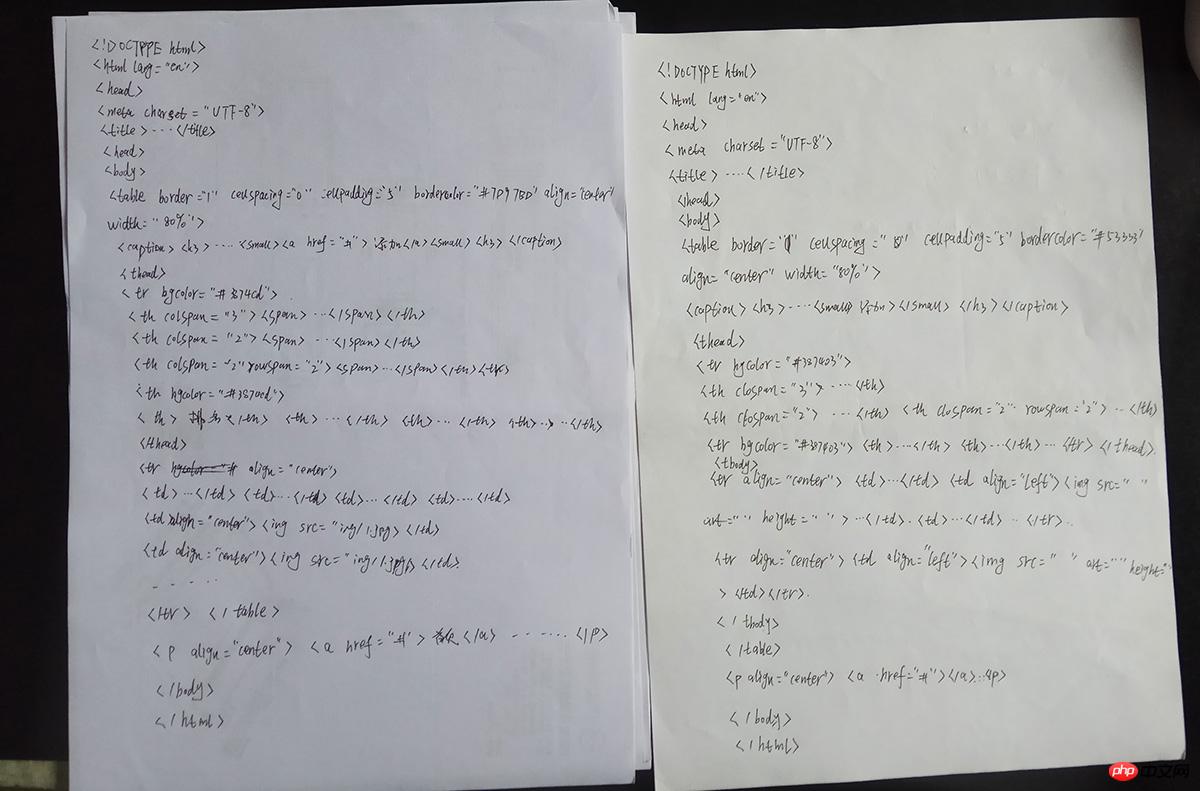 <!DOCTPPE html>
<html lang="en">
<head>
<meta charset="UTF-8">
<title>····</title>
<head>
<body>
<table border="1" cellspacing="0" cellpadding="5" bordercolor="#7D97BD" align="center"
width="80%">
<caption><h3>····<small><a href="#">添加</a><small><h3></caption>
<thead>
<tr bgcolor="#3874cd">
<th colspan="3"><span>···</span></th>
<th colspan="2"><span>····</span></th>
<th colspan="2" rowspan="2"><span>···</span></th><tr>
<th bgcolor="#3870cd">
<th></th> <th>····</th> <th>···</th> <th>·····</th>
<thead>
<tr align="center">
<td>···</td> <td>···</td> <td>···</td> <td>····</td>
<td align="center"><img src="img/1.jpg></td>
<td align="center"><img src="img/1.jpg></td>
- - - - -
</tr> </table>
<p align="center"> <a href="#"></a> - - - ···· </p>
</body>
</html>
<!DOCTYPE html>
<html lang="en">
<head>
<meta charset="UTF-8">
<title>····</title>
</head>
<body>
<table border="1" cellspacing="0" cellpadding="5" bordercolor="#53333"
align="center" width="80%">
<caption><h3>····<small>添加</small></h3></caption>
<thead>
<tr bgcolor="#387403">
<th clospan="3">····</th>
<th clospan="2">····</th> <th clospan="2" rowspan="2">··</th>
<tr bgcolor="#387403"><th>···</th> <th>···</th>··· <tr></thead>
<tbody>
<tr align="center"> <td>···</td> <td align="left"><img src=" "
art=" " height=" ">···</td>. <td>···</td> ·· </tr>··
<tr align="center"><td align="left"><img src=" " art=" " height=" "
> <td></tr>.
</tbody>
</table>
<p align="center"> <a href="#"></a>···<p>
</body>
</html>
php中文网